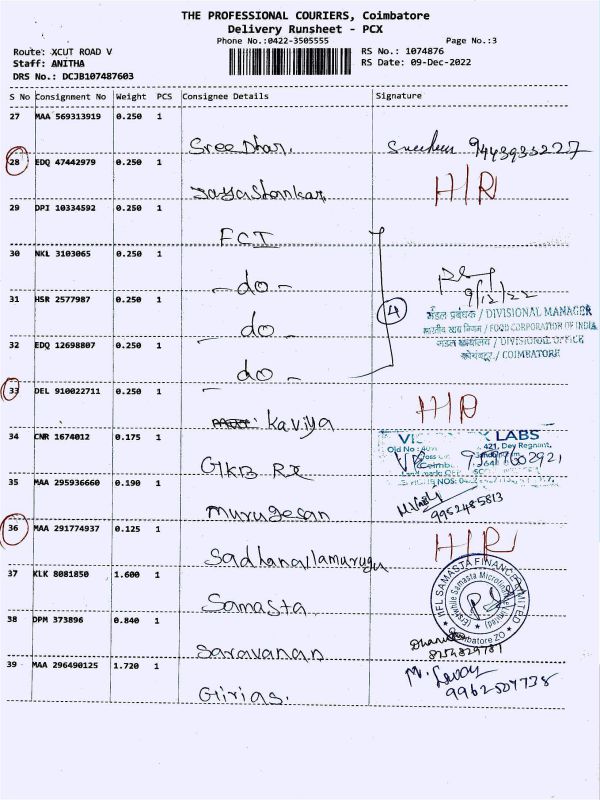 THE PROFESSIONAL COURIERS, Coimbatore
Delivery Runsheet - PCX
Phone No.:0422-3505555 Page No.:3
Route: XCUT ROAD V RS No.: 1074876
Staff: ANITHA RS Date: 09-Dec-2022
DRS No.: DCJB107487603
S No Consignment No Weight PCS Consignee Details Signature
27 MAA 569313919 0.250 1
Sree Dhar.
28 EDQ 47442979 0.250 1
Jayashankar H/R
29 DPI 10334592 0.250 1
FCI
30 NKL 3103065 0.250 1
- do -
9/12/22
31 HSR 2577987 0.250 1
- do - 4
मंडल प्रबंधक / DIVISIONAL MANAGER
भारतीय खाद्य निगम / FOOD CORPORATION OF INDIA
32 EDQ 12698807 0.250 1
मंडल कार्यालय / DIVISIONAL OFFICE
कोयंबटूर / COIMBATORE
- do -
33 DEL 910022711 0.250 1
Kaviya H/R
34 CNR 1674012 0.175 1
LABS
Old No
421, Dey Regnant,
GKB RX
35 MAA 295936660 0.190 1
Murugesan 9952485813
36 MAA 291774937 0.125 1
H/R
Sadhanallamurugu
37 KLK 8081850 1.600 1
IIFL SAMASTA FINANCE LIMITED
(Erstwhile Samasta Microfinance Limited)
Coimbatore ZO
Samasta
38 DPM 373896 0.840 1
Saravanan
39 MAA 296490125 1.720 1
Girias. 9962507738